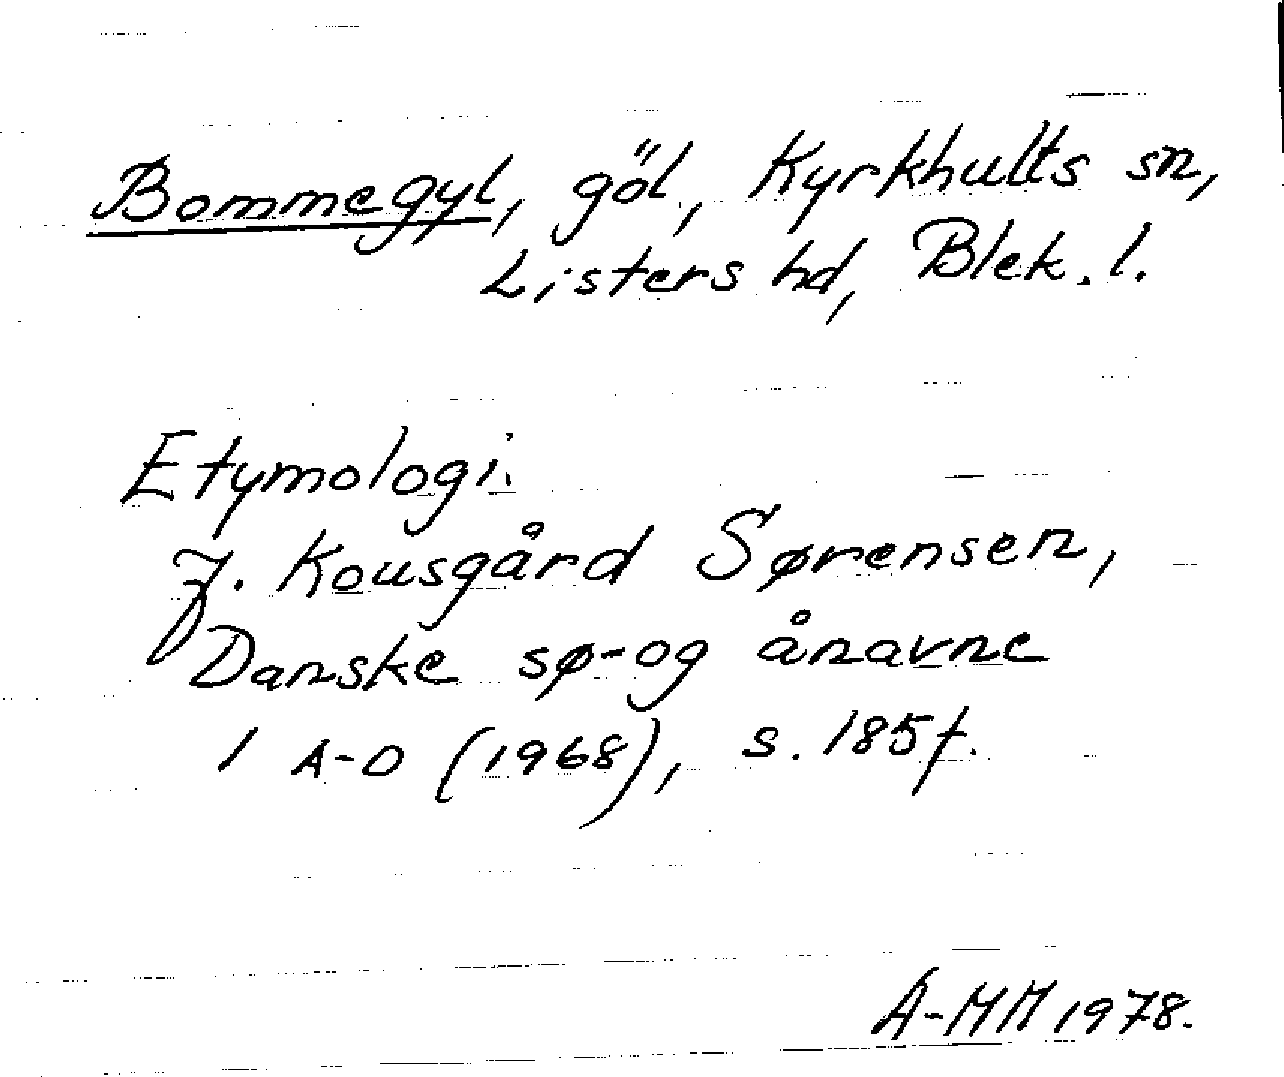 Bommegyl, göl, Kyrkhults sn,
Listers hd, Blek. l.
Etymologi.
J. Kousgård Sørensen,
Danske sø- og ånavne
1 A-D (1968), s. 185f.
A-MM 1978.